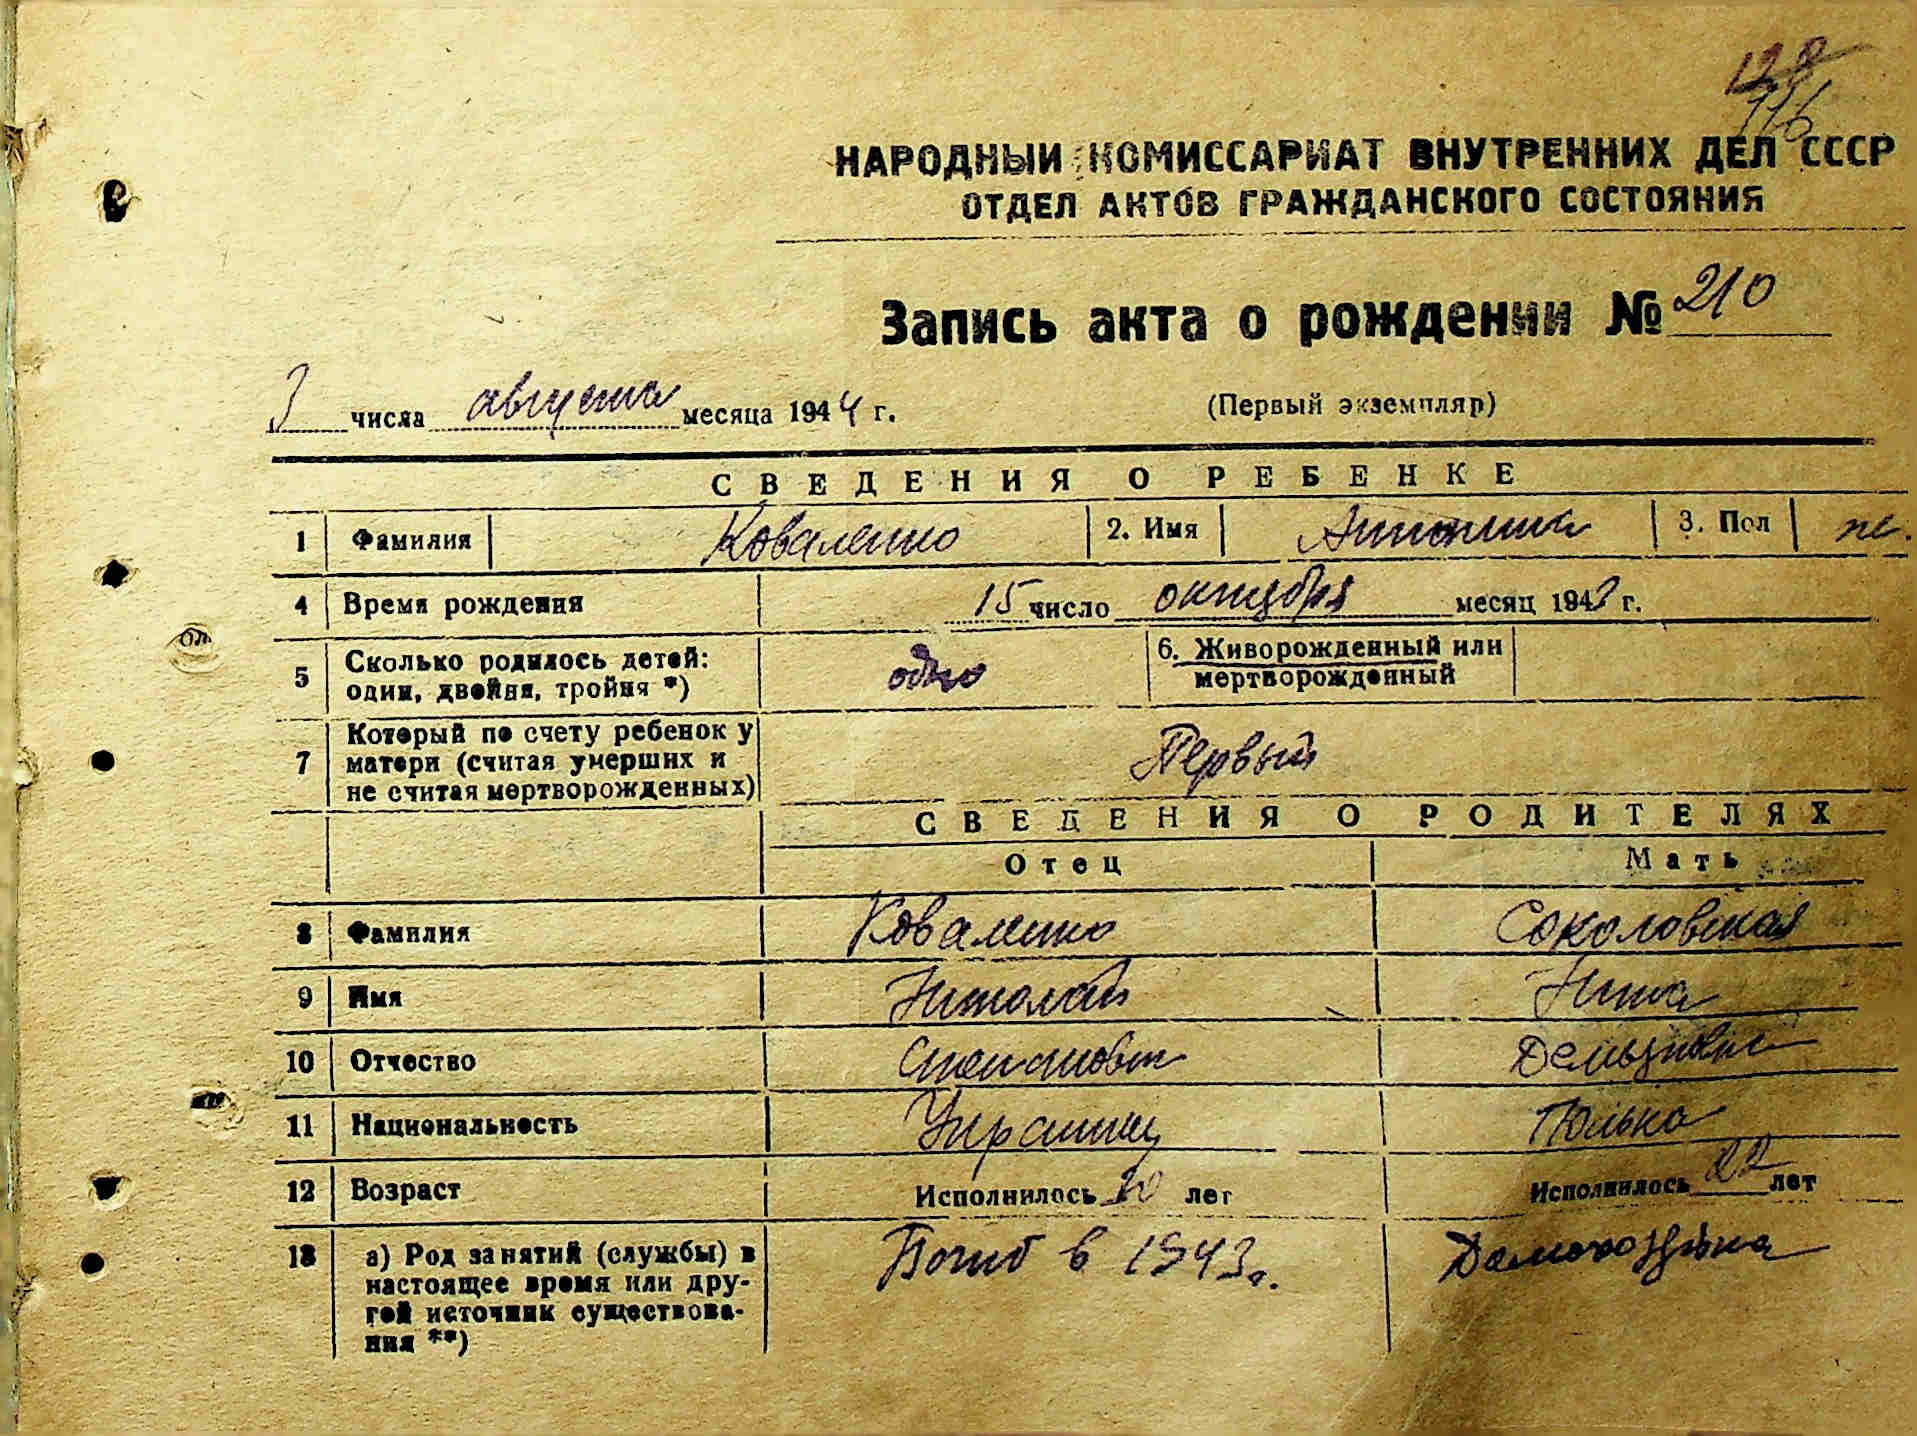 128
116
НАРОДНЫЙ КОМИССАРИАТ ВНУТРЕННИХ ДЕЛ СССР
ОТДЕЛ АКТОВ ГРАЖДАНСКОГО СОСТОЯНИЯ
Запись акта о рождении № 210
3 числа августа месяца 1944 г. (Первый экземпляр)
СВЕДЕНИЯ О РЕБЕНКЕ
1 Фамилия Коваленко 2. Имя Антонина 3. Пол ж.
4 Время рождения 15 число октября месяц 194 г.
5 Сколько родилось детей: одно 6. Живорожденный или
один, двойня, тройня *) мертворожденный
7 Который по счету ребенок у
матери (считая умерших и Первый
не считая мертворожденных)
СВЕДЕНИЯ О РОДИТЕЛЯХ
Отец Мать
8 Фамилия Коваленко Соколовская
9 Имя Николай Нина
10 Отчество Степанович
11 Национальность Украинец Полька
12 Возраст Исполнилось 20 лет Исполнилось 22 лет
13 а) Род занятий (службы) в Погиб в 1943 г. Домохозяйка
настоящее время или дру-
гой источник существова-
ния **)